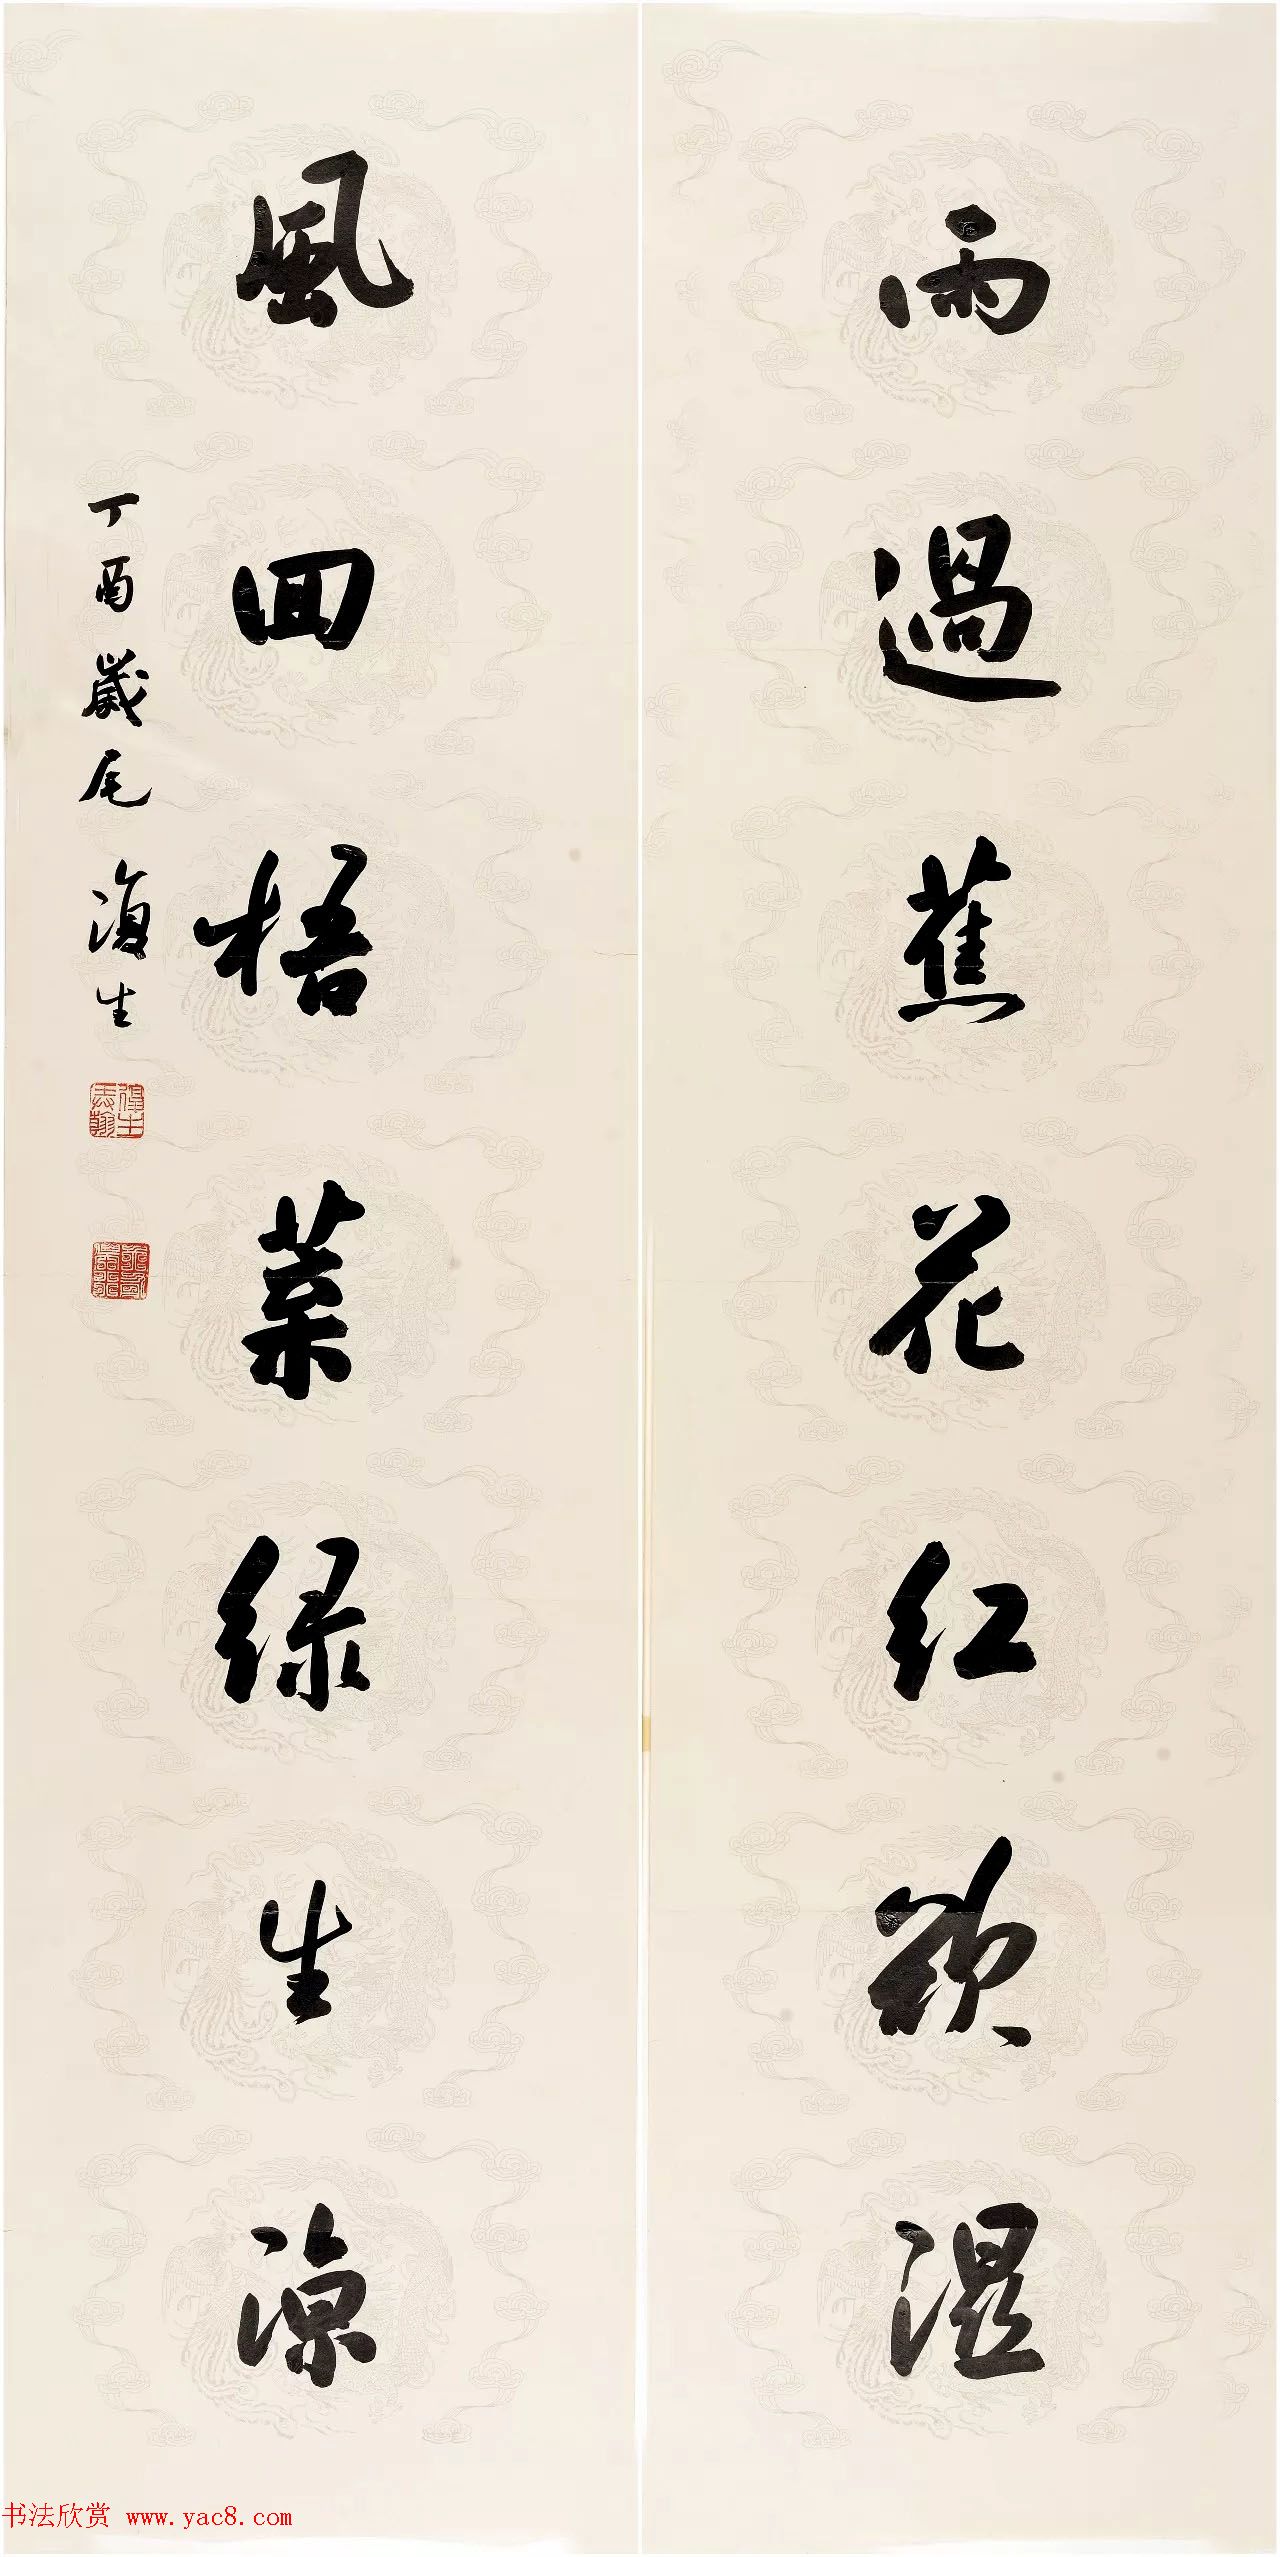 雨過蕉花红欲湿
風回梧葉绿生凉
丁酉歲尾 復生
书法欣赏 www.yac8.com